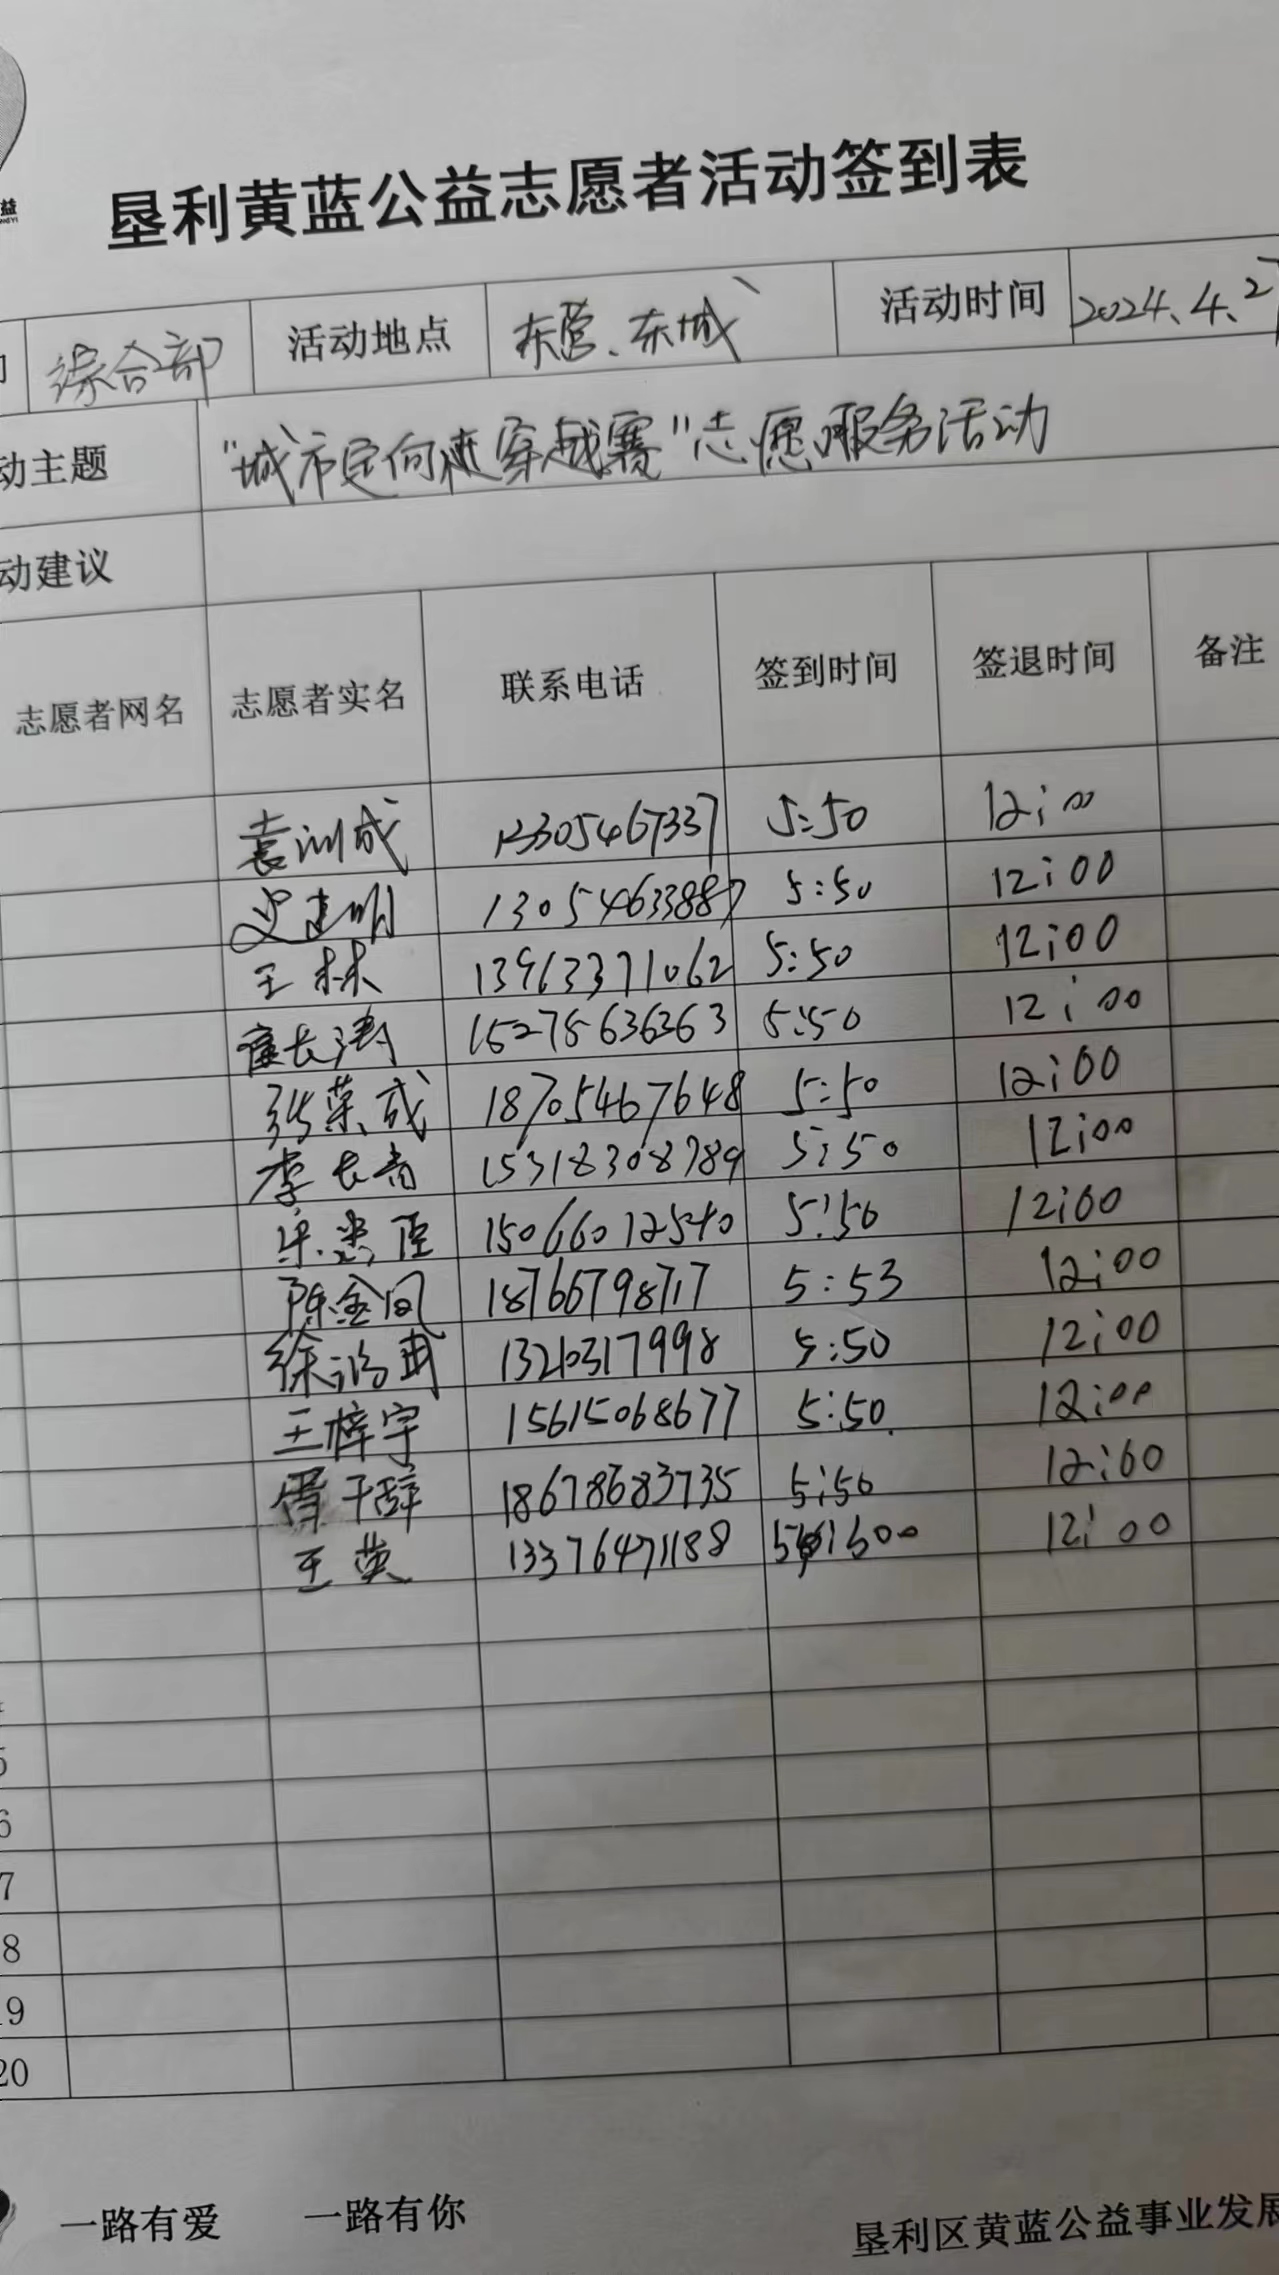 益
垦利黄蓝公益志愿者活动签到表
综合部 活动地点 东营、东城 活动时间 2024.4.27
动主题 "城市定向赛穿越赛"志愿服务活动
动建议
志愿者网名 志愿者实名 联系电话 签到时间 签退时间 备注
袁训成 13305467337 5:50 12:00
史建明 13054633887 5:50 12:00
王林 13963371062 5:50 12:00
长涛 15275636363 5:50 12:00
张荣成 18705467648 5:50 12:00
李长青 15318308789 5:50 12:00
15066012540 5:50 12:00
陈金凤 18766798717 5:53 12:00
徐鸿武 13210317998 5:50 12:00
王梓宇 15615068677 5:50 12:00
18678683735 5:50 12:00
王英 13376471188 12:00
5
6
7
8
19
20
一路有爱 一路有你
垦利区黄蓝公益事业发展